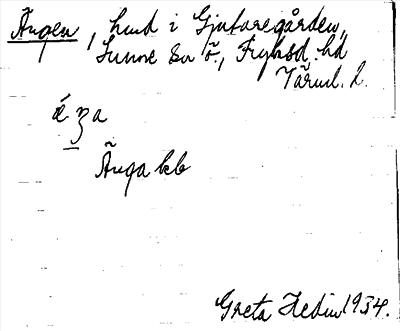 Ängen, hmd i Gjutaregården,
Sunne sn o., Fryksd. hd
Värml. l.
Änga kb
Greta Hedin 1934.